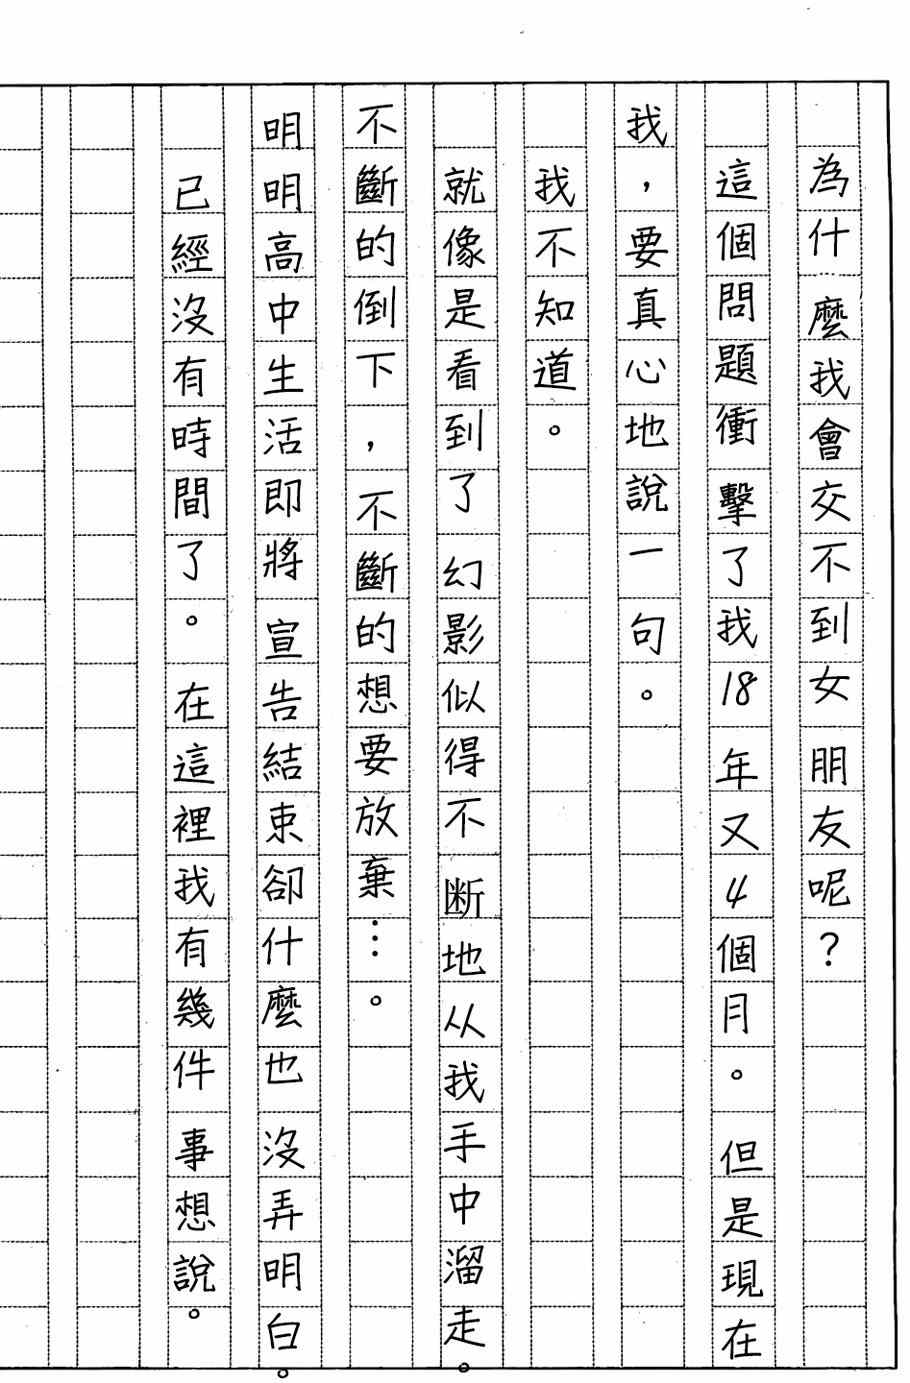 為什麼我會交不到女朋友呢？
這個問題衝擊了我18年又4個月。但是現在
我，要真心地說一句。
我不知道。
就像是看到了幻影似得不断地从我手中溜走。
不斷的倒下，不斷的想要放棄…。
明明高中生活即將宣告結束卻什麼也沒弄明白。
已經沒有時間了。在這裡我有幾件事想說。